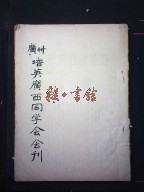 廣州培英廣西同学会会刊
雜·書館